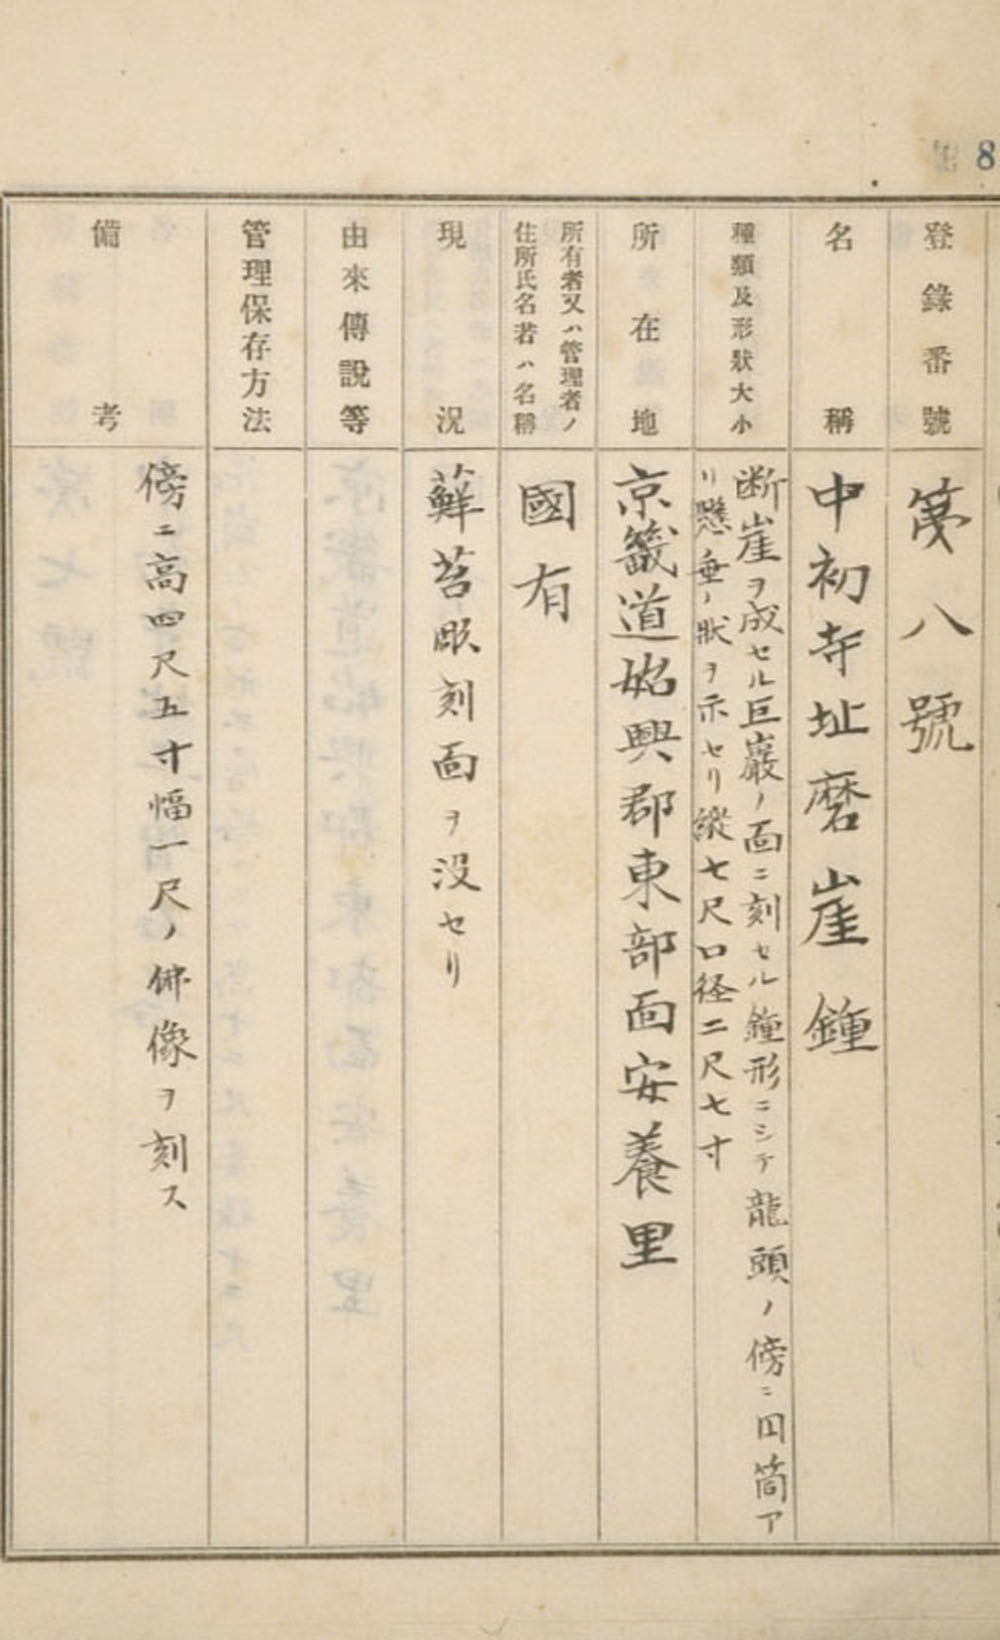 8
登錄番號
第八號
名稱
中初寺址磨崖鐘
種類及形狀大小
断崖ヲ成セル巨巖ノ面ニ刻セル鐘形ニシテ龍頭ノ傍ニ円筒ア
リ懸垂ノ狀ヲ示セリ縱七尺口径二尺七寸
所在地
京畿道始興郡東部面安養里
所有者又ハ管理者ノ
住所氏名若ハ名稱
國有
現況
蘚苔彫刻面ヲ没セリ
由來傳說等
管理保存方法
備考
傍ニ高四尺五寸幅一尺ノ佛像ヲ刻ス